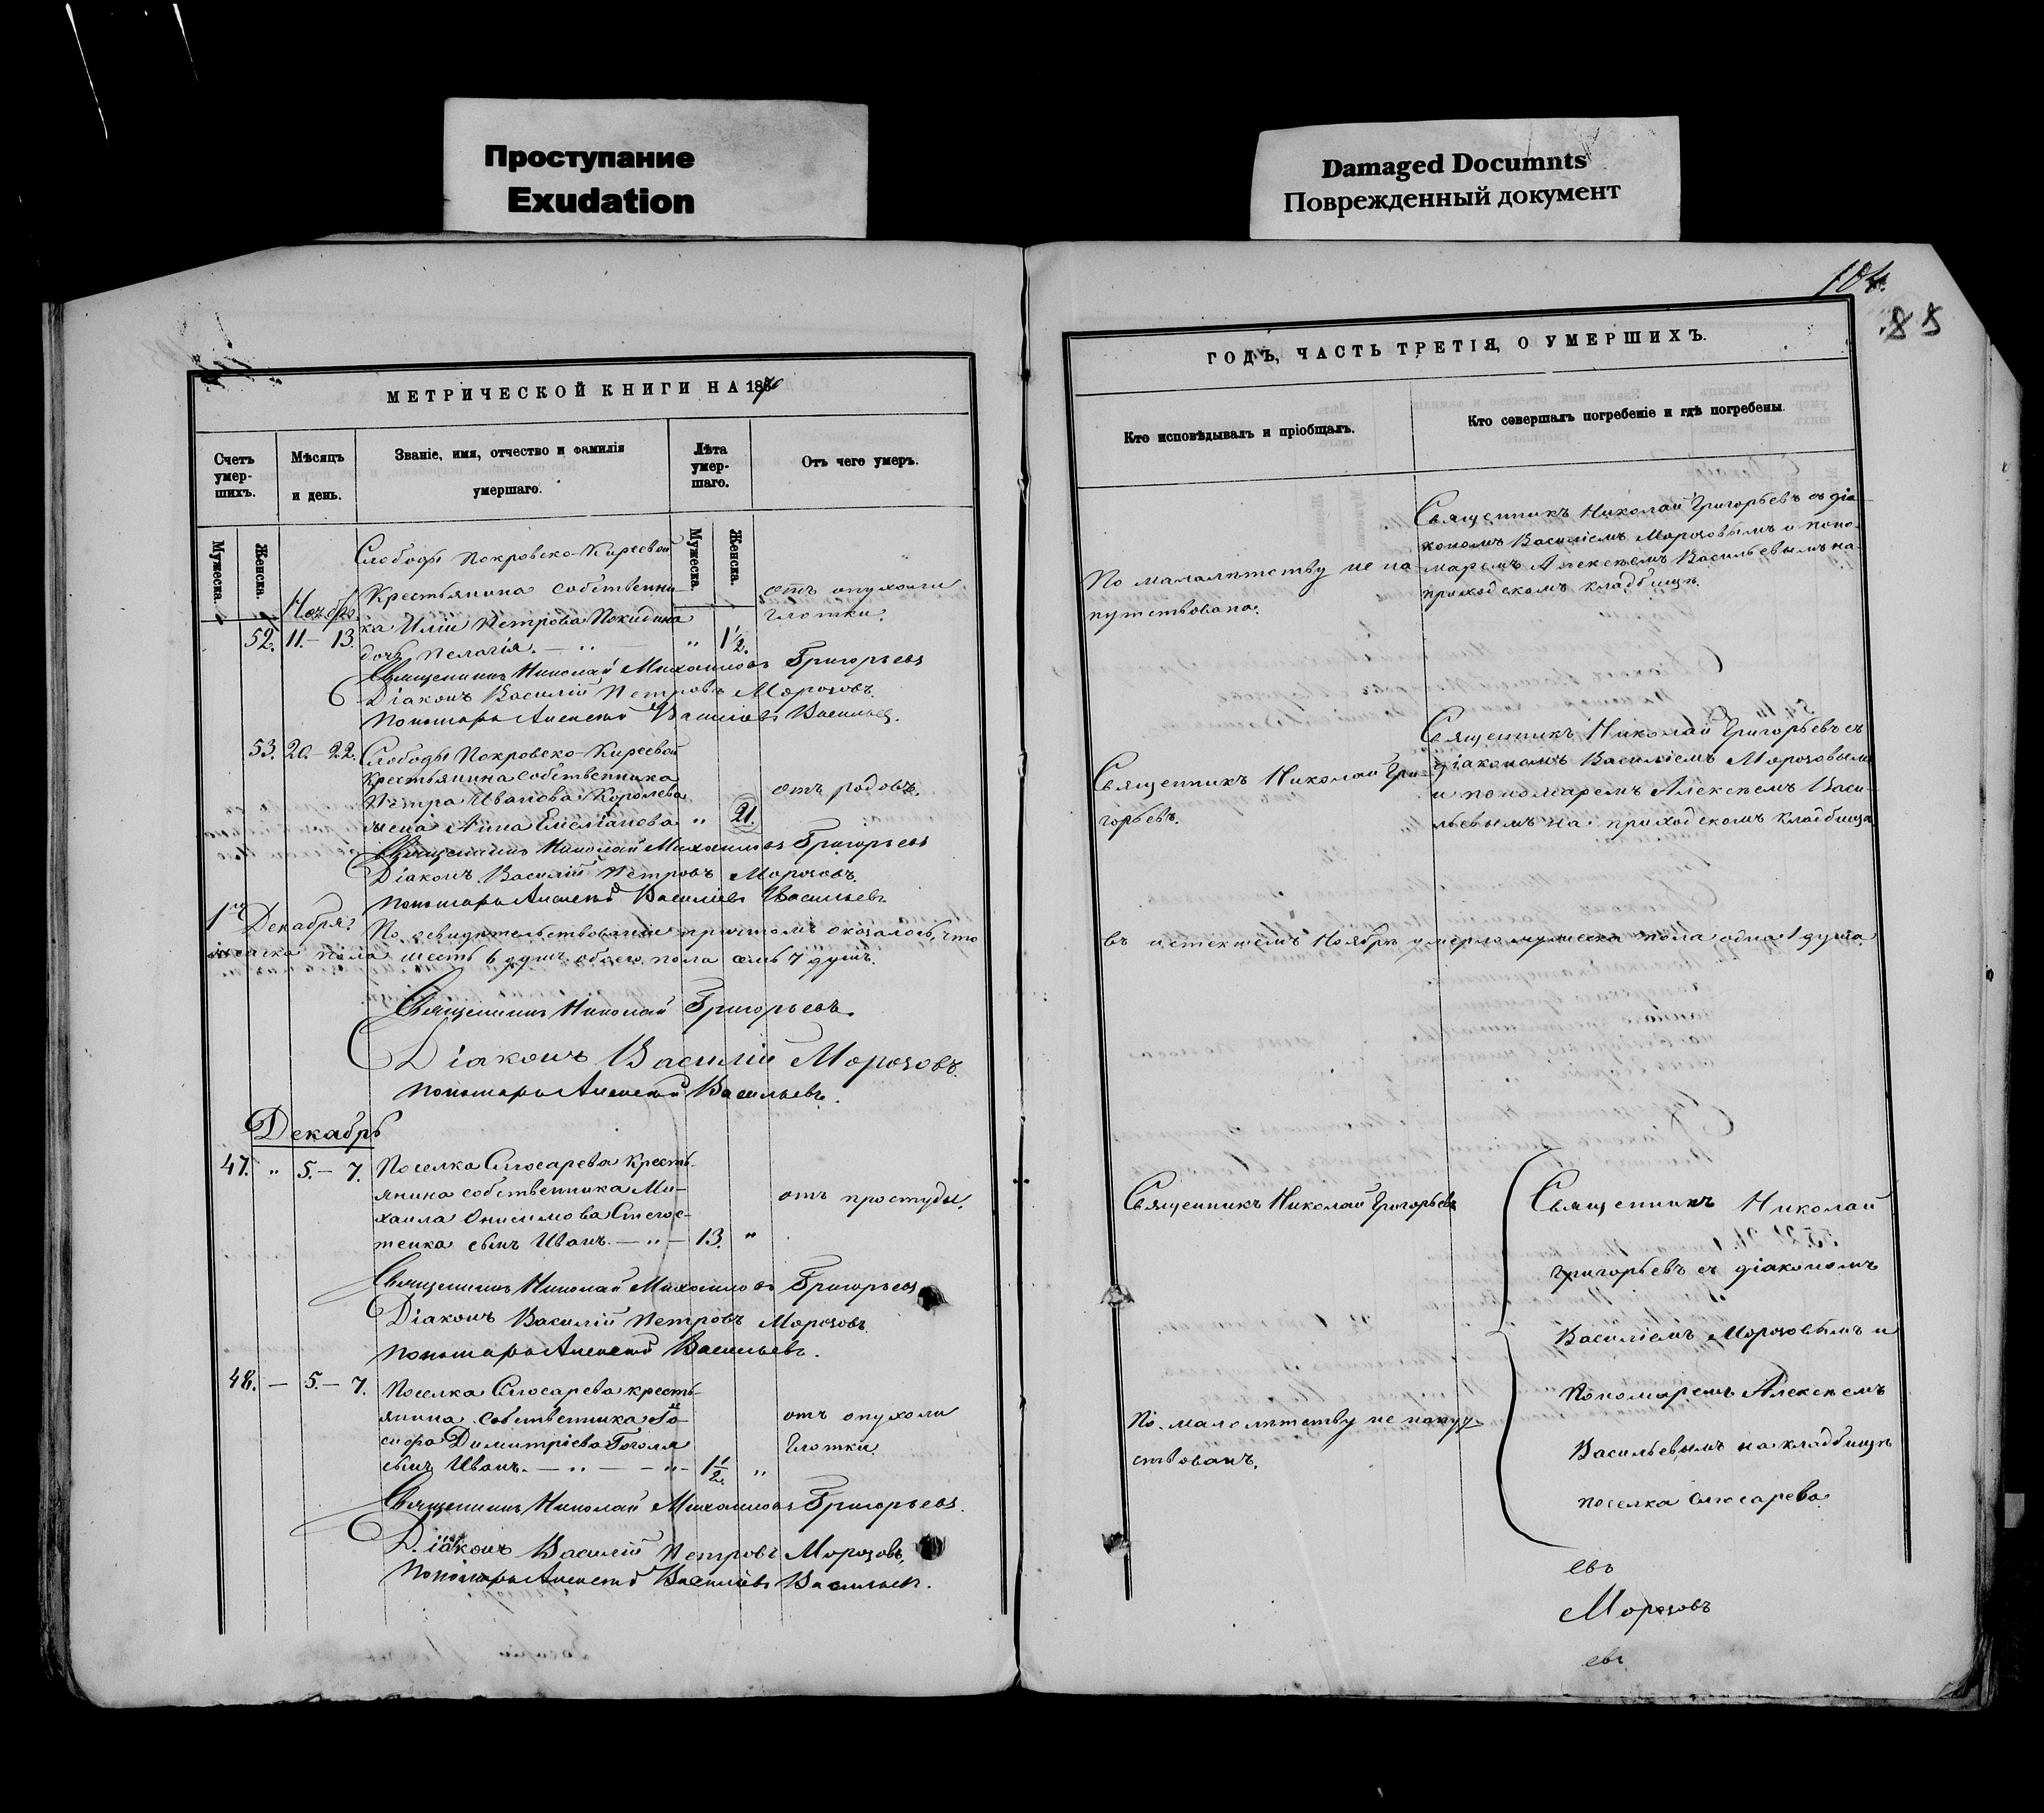 Проступание
Exudation
Damaged Documnts
Поврежденный документ
104.
85
МЕТРИЧЕСКОЙ КНИГИ НА 1870
Счетъ умер-шихъ.
Мѣсяцъ и день.
Званіе, имя, отчество и фамилія умершаго.
Лѣта умер-шаго.
Отъ чего умеръ.
Мужеска.
Женска.
Мужеска.
Женска.
Ноябрь
Слободы Покровско-Киреевой
Крестьянина собственни
ка Иліи Петрова Покидина
52. 11.-13. дочь Пелагія. — „ — „ 1½.
отъ опухоли
глотки.
Священникъ Николай Михаиловъ Григорьевъ
Діаконъ Василій Петровъ Морозовъ.
Пономарь Алексѣй Васильевъ Васильевъ.
53. 20.-22. Слободы Покровско-Киреевой
Крестьянина собственника
Петра Иванова Королева
жена Анна Емеліанова „ 21.
отъ родовъ.
Священникъ Николай Михаиловъ Григорьевъ
Діаконъ Василій Петровъ Морозовъ.
Пономарь Алексѣй Васильевъ Васильевъ.
1го Декабря
По освидѣтельствованіи причтомъ оказалось, что
женска пола шесть 6 душъ обоего пола семь 7 душъ.
Священникъ Николай Григорьевъ.
Діаконъ Василій Морозовъ.
Пономарь Алексѣй Васильевъ.
Декабрь
47. „ 5.-7. Поселка Слюсарева Кресть-
янина собственника Ми-
хаила Онисимова
сынъ Иванъ. — „ — 13. „
отъ простуды.
Священникъ Николай Михаиловъ Григорьевъ
Діаконъ Василій Петровъ Морозовъ.
Пономарь Алексѣй Васильевъ.
48. — 5.-7. Поселка Слюсарева кресть-
янина собственника
Димитріева Гоголя
сынъ Иванъ. — „ — „ — 1½. „
отъ опухоли
глотки.
Священникъ Николай Михаиловъ Григорьевъ.
Діаконъ Василій Петровъ Морозовъ.
Пономарь Алексѣй Васильевъ Васильевъ.
ГОДЪ, ЧАСТЬ ТРЕТІЯ, О УМЕРШИХЪ.
Кто исповѣдывалъ и пріобщалъ.
Кто совершалъ погребеніе и гдѣ погребены.
По малолѣтству не на
путствована.
Священникъ Николай Григорьевъ съ діа
кономъ Василіемъ Морозовымъ и поно-
маремъ Алексѣемъ Васильевымъ на
приходскомъ кладбищѣ.
Священникъ Николай Гри-
горьевъ.
Священникъ Николай Григорьевъ съ
діакономъ Василіемъ Морозовымъ
и пономаремъ Алексѣемъ Васи-
льевымъ на приходскомъ кладбищѣ
въ истекшемъ Ноябрѣ умерло мужеска пола одна 1 душа
Священникъ Николай Григорьевъ
По малолѣтству не напут-
ствованъ.
Священникъ Николай
Григорьевъ съ діакономъ
Василіемъ Морозовымъ и
Пономаремъ Алексѣемъ
Васильевымъ на кладбищѣ
поселка Слюсарева
евъ
Морозовъ
евъ